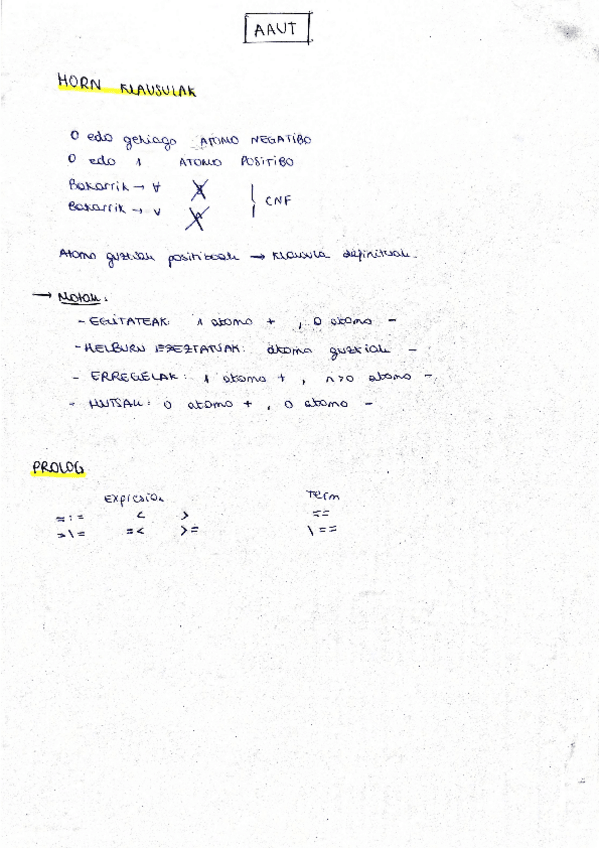 AAUT
HORN KLAUSULAK
0 edo gehiago ATOMO NEGATIBO
0 edo 1 ATOMO POSITIBO
Bakarrik → ∀ ∃ | CNF
Bakarrik → ∨ |
Atomo guztiak positiboak → klausula definituak.
→ Motak:
- EGITATEAK: 1 atomo + , 0 atomo -
- HELBURU EZEZTATUAK: atomo guztiak -
- ERREGELAK: 1 atomo + , n>0 atomo -
- HUTSAK: 0 atomo + , 0 atomo -
PROLOG
Expresion Term
=:= < > ==
=\= =< >= \==